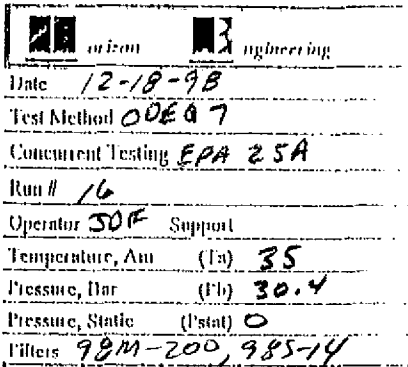 orizon ngineering
Date 12-18-98
Test Method ODEQ 7
Concurrent Testing EPA 25A
Run # 16
Operator JDF Support
Temperature, Am (Ta) 35
Pressure, Bar (Pb) 30.4
Pressure, Static (Pstat) 0
Filters 98M-200, 98S-14